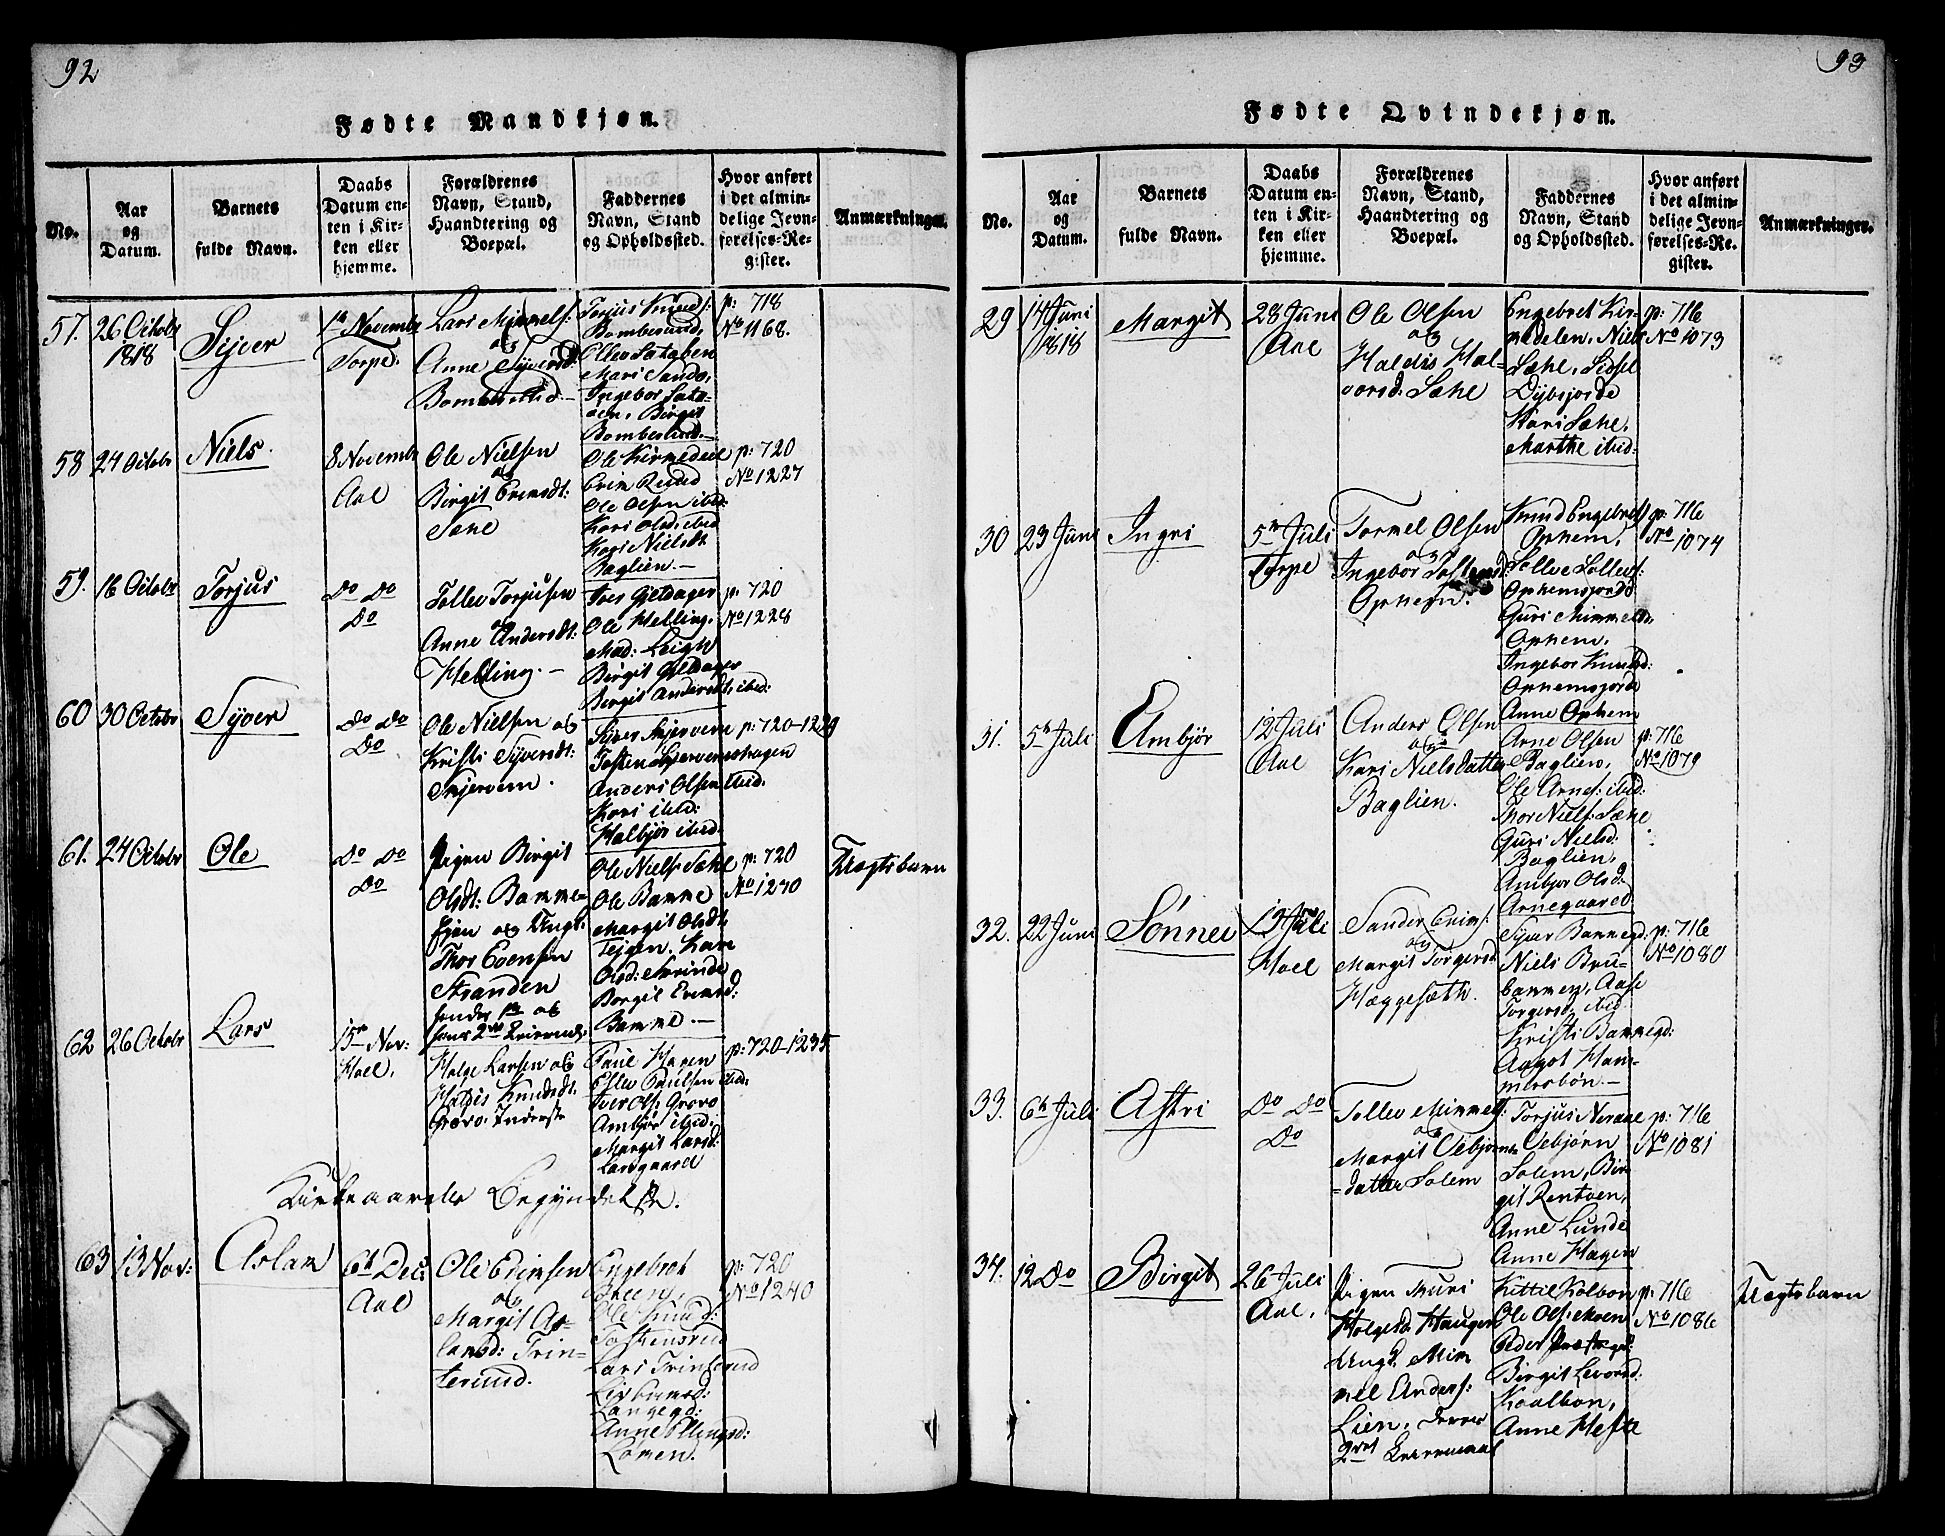 92
Fødte Mandkjøn.
No.
Aar
og
Datum.
Barnets
fulde Navn.
Daabs
Datum en-
ten i Kir-
ken eller
hjemme.
Forældrenes
Navn, Stand,
Haandtering og
Boepæl.
Faddernes
Navn, Stand
og Opholdssted.
Hvor anført
i det almin-
delige Jevn-
førelses-Re-
gister.
Anmærkninger.
57.
26 Octobr
1818
Syver
1te Novembr
Torpe.
Lars Mimmels:
og
Anne Syversd:
Bomberud.
Torjus Knuds:
Bomberud,
Mari Sando,
Birgit
Bomberud.
p: 718
No 1168.
58
24 Octobr
Niels.
8 Novembr
Aal
Ole Nielsen
og
Birgit Evensdt:
Sæhe
Ole Kirmedeel
Ole Olsen ibid:
Kari Olsd: ibid
Kari Nielsdt
Baglien.
p: 720
No 1227
59.
16 Octobr
Torjus
Do Do
Do
Tollev Torjusen
og
Anne Andersdt:
Helling.
Iver Gieldager
Ole Helling.
Mad: Leigh
Birgit Gieldager
Birgit Andersdt: ibid:
p: 720
No 1228
60
30 Octobr
Syver
Do Do
Do
Ole Nielsen og
Kristi Syversdt:
Skjervem.
Anders Olsen ibid.
Kari ibid:
Halbjør ibid.
p: 720-1229
61.
24 Octobr
Ole
Do Do
Do
Pigen Birgit
Olsdt: Bamme-
og Ungk:
Thor Evensen
Stranden
Ole Niels: Sæhe
Ole Bamme
Margit Olsdt:
Bamme.
p: 720
No 1230
Uægtebarn
62
26 Octobr
Lars
15de Nov:
Hoel.
Holge Larsen og
Haldis Knudsdt:
Paul Hagen
Eslev Paulsen ibid.
Iver Ols: Grøvo
Ambjør ibid:
Margit Larsd:
Larsgaard
p: 720-1235
Kirkeaarets Begyndelse.
63
13 Nov:
Aslam
6te Dec:
Aal
Ole Edimsen
og
Margit As-
lansd: Trin-
terud.
Engebret
Ole Knud:
Lars Trinterud
Langegd:
Anne Ellingsd:
Lømen.
p: 720
No 1240
93
Fødte Qvindekjøn.
No.
Aar
og
Datum.
Barnets
fulde Navn.
Daabs
Datum en-
ten i Kir-
ken eller
hjemme.
Forældrenes
Navn, Stand,
Haandtering og
Boepæl.
Faddernes
Navn, Stand
og Opholdssted.
Hvor anført
i det almin-
delige Jevn-
førelses-Re-
gister.
Anmærkninger.
29
14 Juni
1818
Margit
28 Juni
Aal
Ole Olsen
og
Haldis Hal-
vorsd: Sæhe
Engebret Kir-
medelen, Niels
Sæhe, Sidsel
Dybsjorde
Kari Sæhe,
Marthe ibid:
p: 716
No 1073
30
23 Juni
Ingri
5te Juli
Torpe
Tormel Olsen
og
Ingebor
Ophem.
Knud Engebrets:
Ophem,
Ophemsjordo
Guri Mimmelsd:
Ophem,
Ingebor Knudsd:
Ophemsjordo
Anne Ophem
p: 716
No 1074
31.
5te Juli
Ambjør
12 Juli
Aal
Anders Olsen
og
Kari Nielsdatter
Baglien.
Arne Olsen
Baglien,
Ole Arnes: ibid:
Thor Niels: Sæhe
Guri Nielsd:
Baglien,
Ambjør Olsd:
Arnegaard
p: 716
No 1079
32.
22 Juni
Sønnei
Juli
Hoel
Sander
og
Margit Torgersd
Hæggesæth.
Syver Bammegd:
Niels Bru-
bammen, Aase
Torgersd: ibid
Kristi Bammegd:
Aagot Ham-
mersbøn.
p: 716
No 1080
33.
6te Juli
Astri
Do Do
Do
Tollev Mimmels:
og
Margit Vebjørns-
datter Solem
Torjus Noraae
Vebjørn
Solem, Bir-
git Rentoen,
Anne Lunde
Anne Hagen
p: 716
No 1081
34.
12 Do
Birgit
26 Juli
Aal.
Pigen Turi
Holgersd: Haugen
Ungk: Mim
mel Anders:
Lien,
Kittil Kolbon
Ole Ols: Moen
Peder Præstegd:
Birgit Levorsd.
Kaalbon,
Anne Hefte
p: 716
No 1086
Uægtebarn